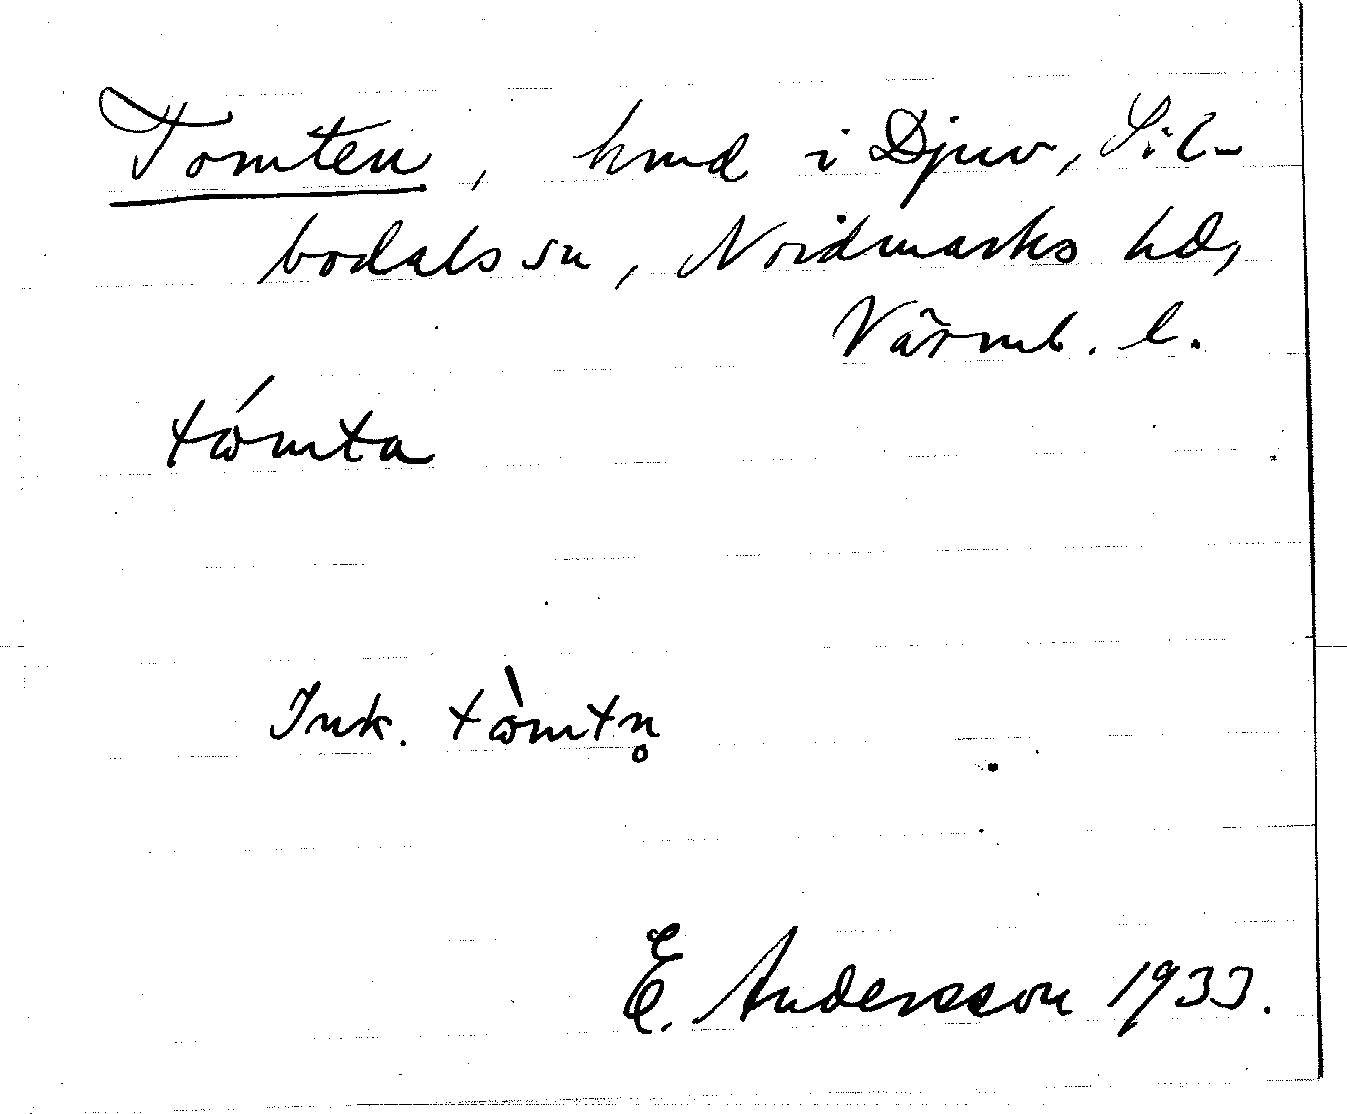 Tomten, hmd i Djuv, Sil-
bodals sn, Nordmarks hd,
Värml. l.
tώmta
Ink. tὼmtn̥
E. Andersson 1933.